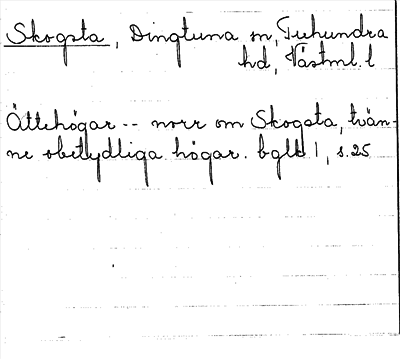 Skogsta, Dingtuna sn, Tuhundra
hd, Västml. l
Ättehögar -- norr om Skogsta, tvän-
ne obetydliga högar. 1, s. 25